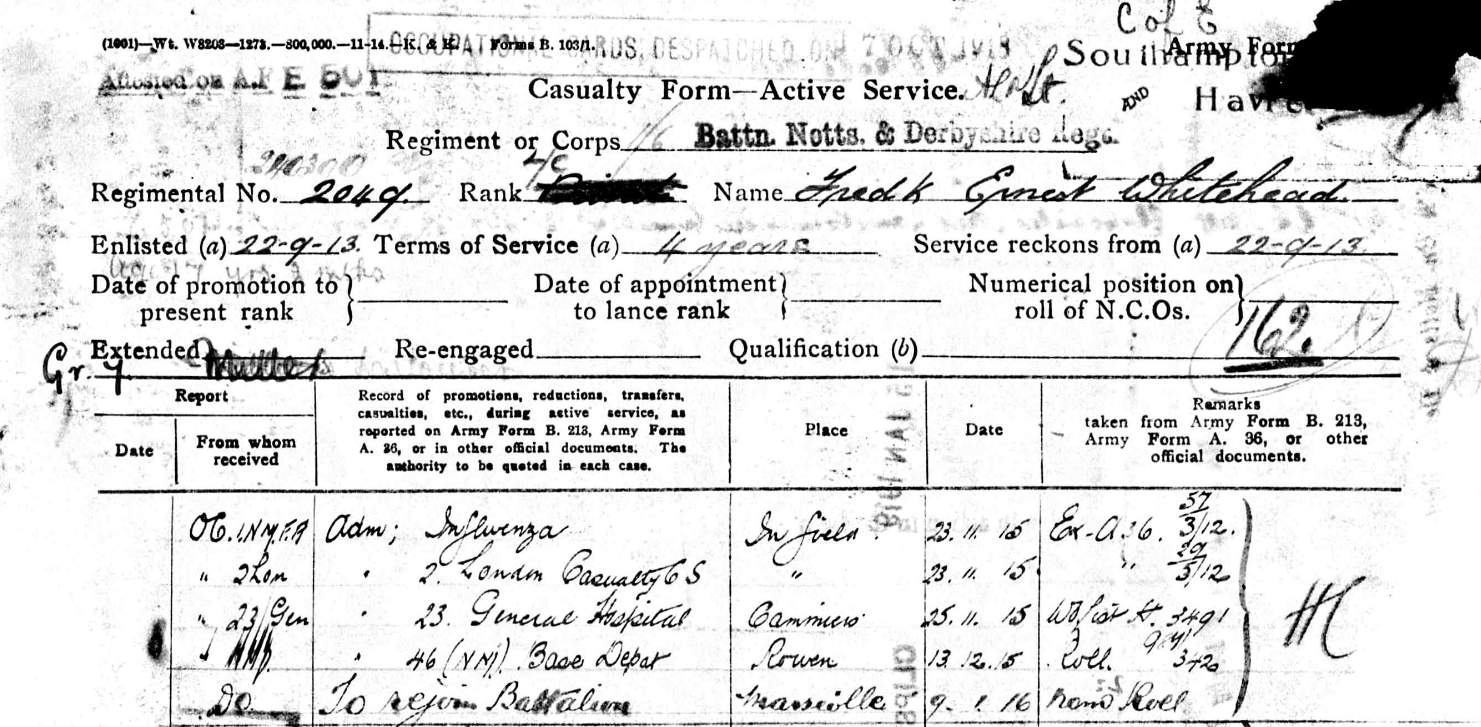 Col E
(1901)—Wt. W8208—1273.—800,000.—11-14. & Forms B. 103/1.
OCCUPATIONAL CARDS, DESPATCHED ON 7 OCT 1918
Army Form
Southampton
AND
Havre
Attested on A.F E 501
Casualty Form—Active Service.
Regiment or Corps 1/6 Battn. Notts. & Derbyshire Regt.
240300
Regimental No. 2049. Rank L/C Name Fredk Ernest Whitehead.
Enlisted (a) 22-9-13. Terms of Service (a) 4 years Service reckons from (a) 22-9-13.
Date of promotion to present rank
Date of appointment to lance rank
Numerical position on roll of N.C.Os.
162.
Extended Re-engaged Qualification (b)
Gr.
Report
Date
From whom received
Record of promotions, reductions, transfers, casualties, etc., during active service, as reported on Army Form B. 213, Army Form A. 36, or in other official documents. The authority to be quoted in each case.
Place
Date
Remarks taken from Army Form B. 213, Army Form A. 36, or other official documents.
OC. 1.N.M.F.A Adm; Influenza In field 23. 11. 15 Ex-A.36. 57 3/12.
" 2 Lon " 2. London Casualty C S " 23. 11. 15 " 29 3/12
" 23/Gen " 23. General Hospital 25. 11. 15 3491
" 46 (NM). Base Depot Rouen 13. 12. 15 Roll. 342
Do To rejoin Battalion Marseille 9. 1. 16 Nom Roll